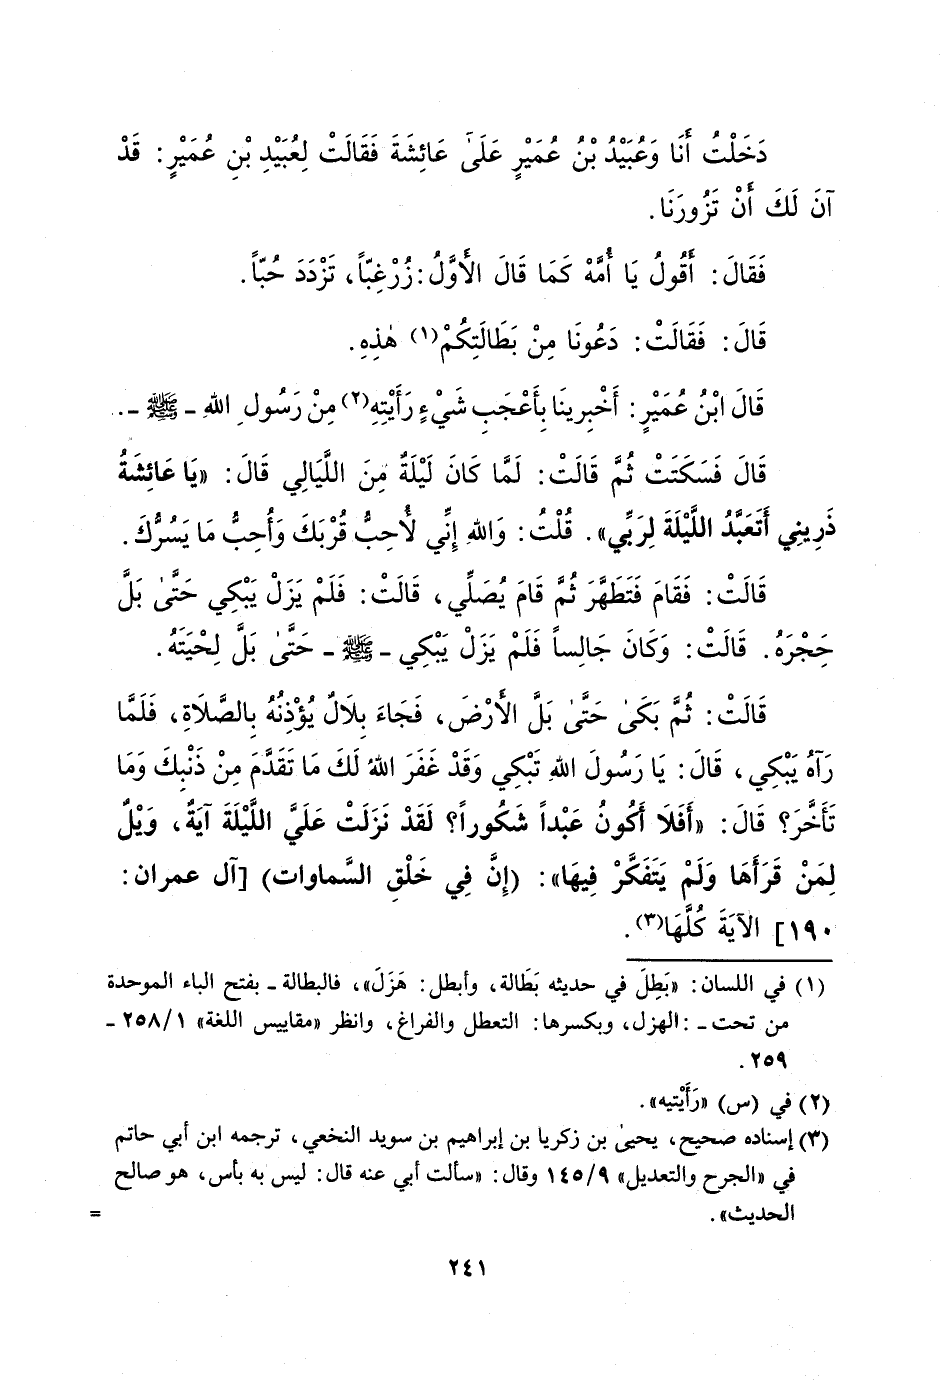 دَخَلْتُ أَنَا وَعُبَيْدُ بْنُ عُمَيْرٍ عَلَىٰ عَائِشَةَ فَقَالَتْ لِعُبَيْدِ بْنِ عُمَيْرٍ: قَدْ
آنَ لَكَ أَنْ تَزُورَنَا.
فَقَالَ: أَقُولُ يَا أُمَّهْ كَمَا قَالَ الأَوَّلُ: زُرْ غِبّاً، تَزْدَدَ حُبّاً.
قَالَ: فَقَالَتْ: دَعُونَا مِنْ بَطَالَتِكُمْ(١) هٰذِهِ.
قَالَ ابْنُ عُمَيْرٍ: أَخْبِرِينَا بِأَعْجَبِ شَيْءٍ رَأَيْتِهِ(٢) مِنْ رَسُولِ اللهِ ـ ﷺ ـ..
قَالَ فَسَكَتَتْ ثُمَّ قَالَتْ: لَمَّا كَانَ لَيْلَةٌ مِنَ اللَّيَالِي قَالَ: «يَا عَائِشَةُ
ذَرِينِي أَتَعَبَّدُ اللَّيْلَةَ لِرَبِّي». قُلْتُ: وَاللهِ إِنِّي لأُحِبُّ قُرْبَكَ وَأُحِبُّ مَا يَسُرُّكَ.
قَالَتْ: فَقَامَ فَتَطَهَّرَ ثُمَّ قَامَ يُصَلِّي، قَالَتْ: فَلَمْ يَزَلْ يَبْكِي حَتَّىٰ بَلَّ
حِجْرَهُ. قَالَتْ: وَكَانَ جَالِساً فَلَمْ يَزَلْ يَبْكِي ـ ﷺ ـ حَتَّىٰ بَلَّ لِحْيَتَهُ.
قَالَتْ: ثُمَّ بَكَىٰ حَتَّىٰ بَلَّ الأَرْضَ، فَجَاءَ بِلَالٌ يُؤْذِنُهُ بِالصَّلَاةِ، فَلَمَّا
رَآهُ يَبْكِي، قَالَ: يَا رَسُولَ اللهِ تَبْكِي وَقَدْ غَفَرَ اللهُ لَكَ مَا تَقَدَّمَ مِنْ ذَنْبِكَ وَمَا
تَأَخَّرَ؟ قَالَ: «أَفَلَا أَكُونُ عَبْداً شَكُوراً؟ لَقَدْ نَزَلَتْ عَلَيَّ اللَّيْلَةَ آيَةٌ، وَيْلٌ
لِمَنْ قَرَأَهَا وَلَمْ يَتَفَكَّرْ فِيهَا»: (إِنَّ فِي خَلْقِ السَّماوات) [آل عمران:
١٩٠] الآيَةَ كُلَّهَا(٣).
(١) في اللسان: «بَطِلَ في حديثه بَطَالة، وأبطل: هَزَلَ»، فالبطالة ـ بفتح الباء الموحدة
من تحت ـ: الهزل، وبكسرها: التعطل والفراغ، وانظر «مقاييس اللغة» ٢٥٨/١ ـ
٢٥٩.
(٢) في (س) «رَأَيْتيه».
(٣) إسناده صحيح، يحيىٰ بن زكريا بن إبراهيم بن سويد النخعي، ترجمه ابن أبي حاتم
في «الجرح والتعديل» ١٤٥/٩ وقال: «سألت أبي عنه قال: ليس به بأس، هو صالح
الحديث». =
٢٤١